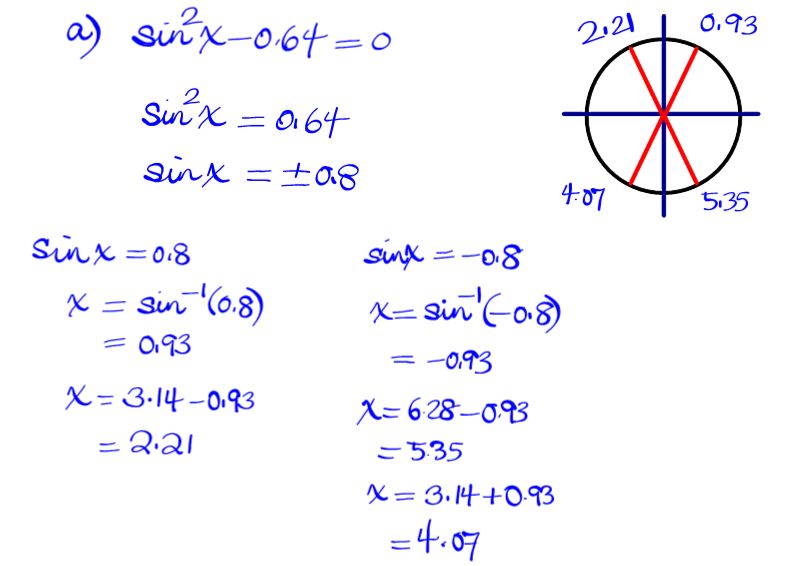 a) sin²x-0.64=0
sin²x = 0.64
sinx = ±0.8
2.21
0.93
4.07
5.35
sinx = 0.8
x = sin⁻¹(0.8)
= 0.93
x = 3.14-0.93
= 2.21
sinx = -0.8
x = sin⁻¹(-0.8)
= -0.93
x = 6.28-0.93
= 5.35
x = 3.14+0.93
= 4.07